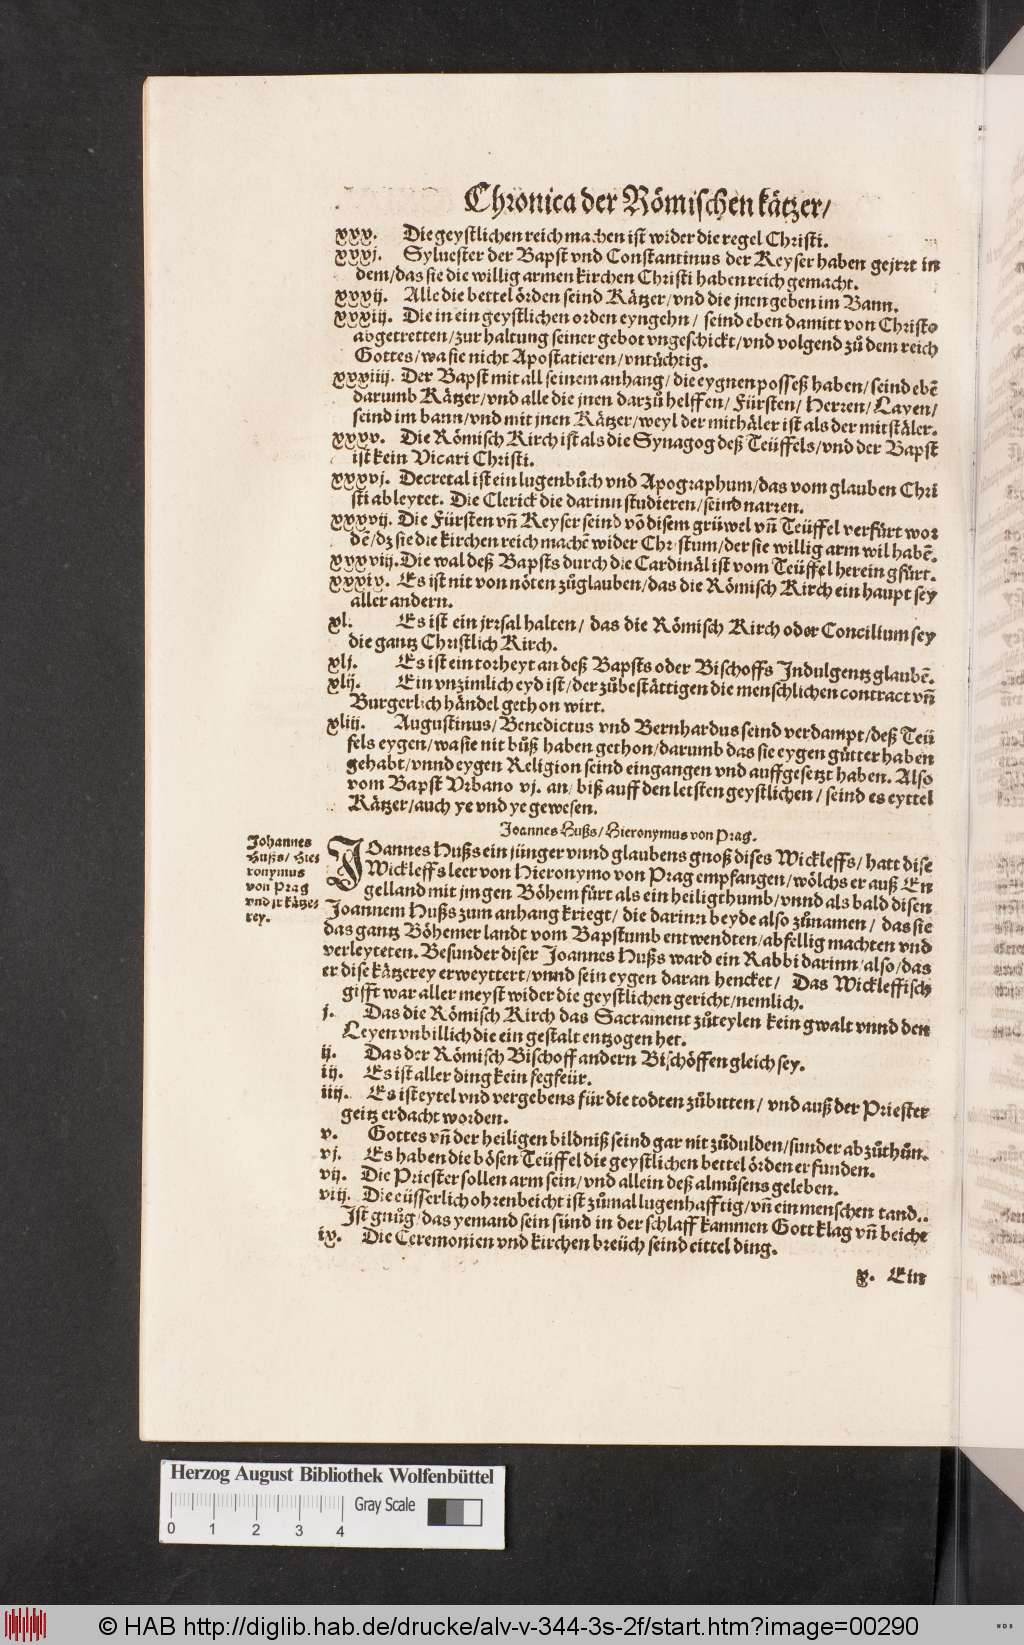 Chronica der Römischen kätzer/
xxx. Die geystlichen reich machen ist wider die regel Christi.
xxxj. Syluester der Bapst vnd Constantinus der Keyser haben gejrrt in
dem/das sie die willig armen kirchen Christi haben reich gemacht.
xxxij. Alle die bettel örden seind Kätzer/vnd die jnen geben im Bann.
xxxiij. Die in ein geystlichen orden eyngehn/ seind eben damitt von Christo
abgetretten/zur haltung seiner gebot vngeschickt/vnd volgend zů dem reich
Gottes/wa sie nicht Apostatieren/vntüchtig.
xxxiiij. Der Bapst mit all seinem anhang/die eygnen posseß haben/seind ebē
darumb Kätzer/vnd alle die jnen darzů helffen/ Fürsten/ Herren/ Layen/
seind im bann/vnd mit jnen Kätzer/weyl der mithäler ist als der mitstäler.
xxxv. Die Römisch Kirch ist als die Synagog deß Teüffels/vnd der Bapst
ist kein Vicari Christi.
xxxvj. Decretal ist ein lugenbůch vnd Apographum/das vom glauben Chri
sti ableytet. Die Clerick die darinn studieren/seind narren.
xxxvij. Die Fürsten vn̄ Keyser seind vō disem grüwel vn̄ Teüffel verfürt wor
dē/dz sie die kirchen reich machē wider Christum/der sie willig arm wil habē.
xxxviij. Die wal deß Bapsts durch die Cardinäl ist vom Teüffel herein gfürt.
xxxix. Es ist nit von nöten zůglauben/das die Römisch Kirch ein haupt sey
aller andern.
xl. Es ist ein jrrsal halten/ das die Römisch Kirch oder Concilium sey
die gantz Christlich Kirch.
xlj. Es ist ein torheyt an deß Bapsts oder Bischoffs Indulgentz glaubē.
xlij. Ein vnzimlich eyd ist/der zůbestättigen die menschlichen contract vn̄
Burgerlich händel gethon wirt.
xliij. Augustinus/Benedictus vnd Bernhardus seind verdampt/deß Teü
fels eygen/wa sie nit bůß haben gethon/darumb das sie eygen gůtter haben
gehabt/vnnd eygen Religion seind eingangen vnd auffgesetzt haben. Also
vom Bapst Vrbano vj. an/ biß auff den letsten geystlichen/ seind es eyttel
Kätzer/auch ye vnd ye gewesen.
Joannes Hußs/Hieronymus von Prag.
Johannes
Hußs/ Hie
ronymus
von Prag
vnd jr kätze
rey.
JOannes Hußs ein jünger vnnd glaubens gnoß dises Wickleffs/hatt dise
Wickleffs leer von Hieronymo von Prag empfangen/wölchs er auß En
gelland mit jm gen Böhem fürt als ein heiligthumb/vnnd als bald disen
Joannem Hußs zum anhang kriegt/ die darinn beyde also zůnamen/ das sie
das gantz Böhemer landt vom Bapstumb entwendten/abfellig machten vnd
verleyteten. Besunder diser Joannes Hußs ward ein Rabbi darinn/also/das
er dise kätzerey erweyttert/vnnd sein eygen daran hencket/ Das Wickleffisch
gifft war aller meyst wider die geystlichen gericht/nemlich.
j. Das die Römisch Kirch das Sacrament zůteylen kein gwalt vnnd den
Leyen vnbillich die ein gestalt entzogen het.
ij. Das der Römisch Bischoff andern Bischöffen gleich sey.
iij. Es ist aller ding kein fegfeür.
iiij. Es ist eytel vnd vergebens für die todten zůbitten/ vnd auß der Priester
geitz erdacht worden.
v. Gottes vn̄ der heiligen bildniß seind gar nit zůdulden/sunder abzůthůn.
vj. Es haben die bösen Teüffel die geystlichen bettel örden erfunden.
vij. Die Priester sollen arm sein/vnd allein deß almůsens geleben.
viij. Die eüsserlich ohrenbeicht ist zůmal lugenhafftig/vn̄ ein menschen tand.
Ist gnůg/das yemand sein sünd in der schlaff kammen Gott klag vn̄ beicht
ix. Die Ceremonien vnd kirchen breüch seind eittel ding.
x. Ein
Herzog August Bibliothek Wolfenbüttel
Gray Scale
0 1 2 3 4
© HAB http://diglib.hab.de/drucke/alv-v-344-3s-2f/start.htm?image=00290